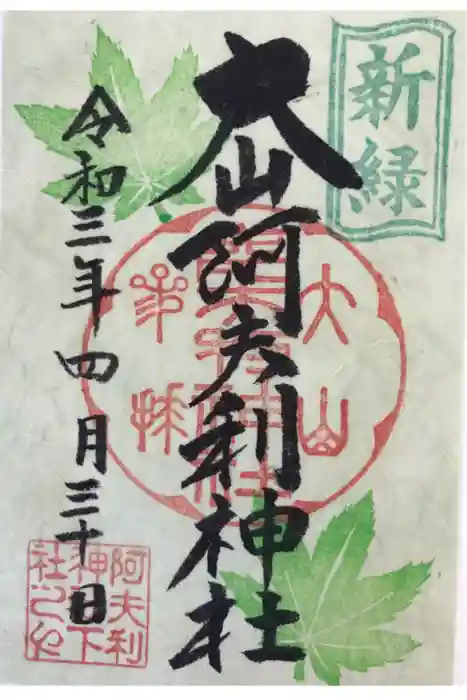 新緑
大山阿夫利神社
令和三年四月三十日
大山
奉拝
阿夫利
神社下
社之印